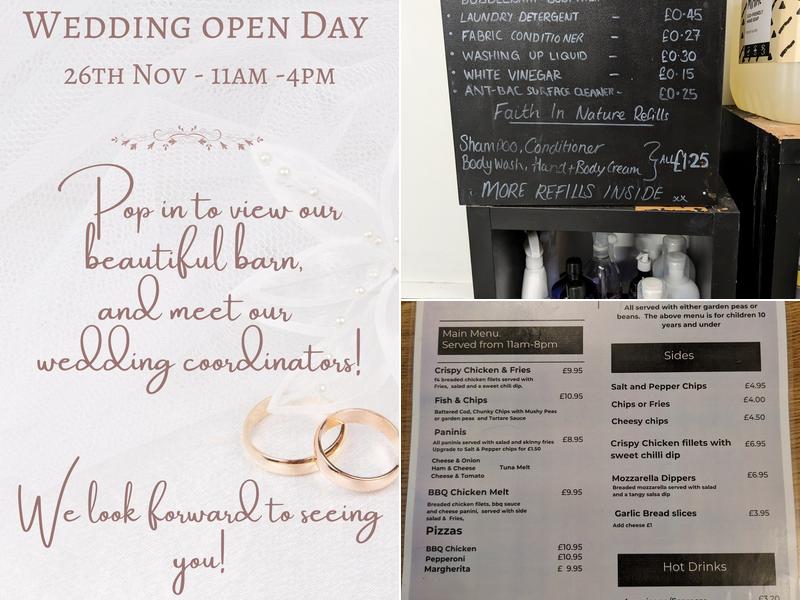 Wedding open Day
26th Nov - 11am -4pm
Pop in to view our
beautiful barn,
and meet our
wedding coordinators!
We look forward to seeing
you!
LAUNDRY DETERGENT - £0.45
FABRIC CONDITIONER - £0.27
WASHING UP LIQUID - £0.30
WHITE VINEGAR - £0.15
ANT-BAC SURFACE CLEANER - £0.25
Faith In Nature Refills
Shampoo, Conditioner
Body Wash, Hand + Body Cream } ALL £1.25
MORE REFILLS INSIDE xx
Main Menu
Served from 11am-8pm
Crispy Chicken & Fries £9.95
f4 breaded chicken filets served with
Fries, salad and a sweet chili dip.
Fish & Chips £10.95
Battered Cod, Chunky Chips with Mushy Peas
or garden peas and Tartare Sauce
Paninis £8.95
All paninis served with salad and skinny fries
Upgrade to Salt & Pepper chips for £1.50
Cheese & Onion
Ham & Cheese Tuna Melt
Cheese & Tomato
BBQ Chicken Melt £9.95
Breaded chicken filets, bbq sauce
and cheese panini, served with side
salad & Fries,
Pizzas
BBQ Chicken £10.95
Pepperoni £10.95
Margherita £ 9.95
All served with either garden peas or
beans. The above menu is for children 10
years and under
Sides
Salt and Pepper Chips £4.95
Chips or Fries £4.00
Cheesy chips £4.50
Crispy Chicken fillets with £6.95
sweet chilli dip
Mozzarella Dippers £6.95
Breaded mozzarella served with salad
and a tangy salsa dip
Garlic Bread slices £3.95
Add cheese £1
Hot Drinks
£3.20